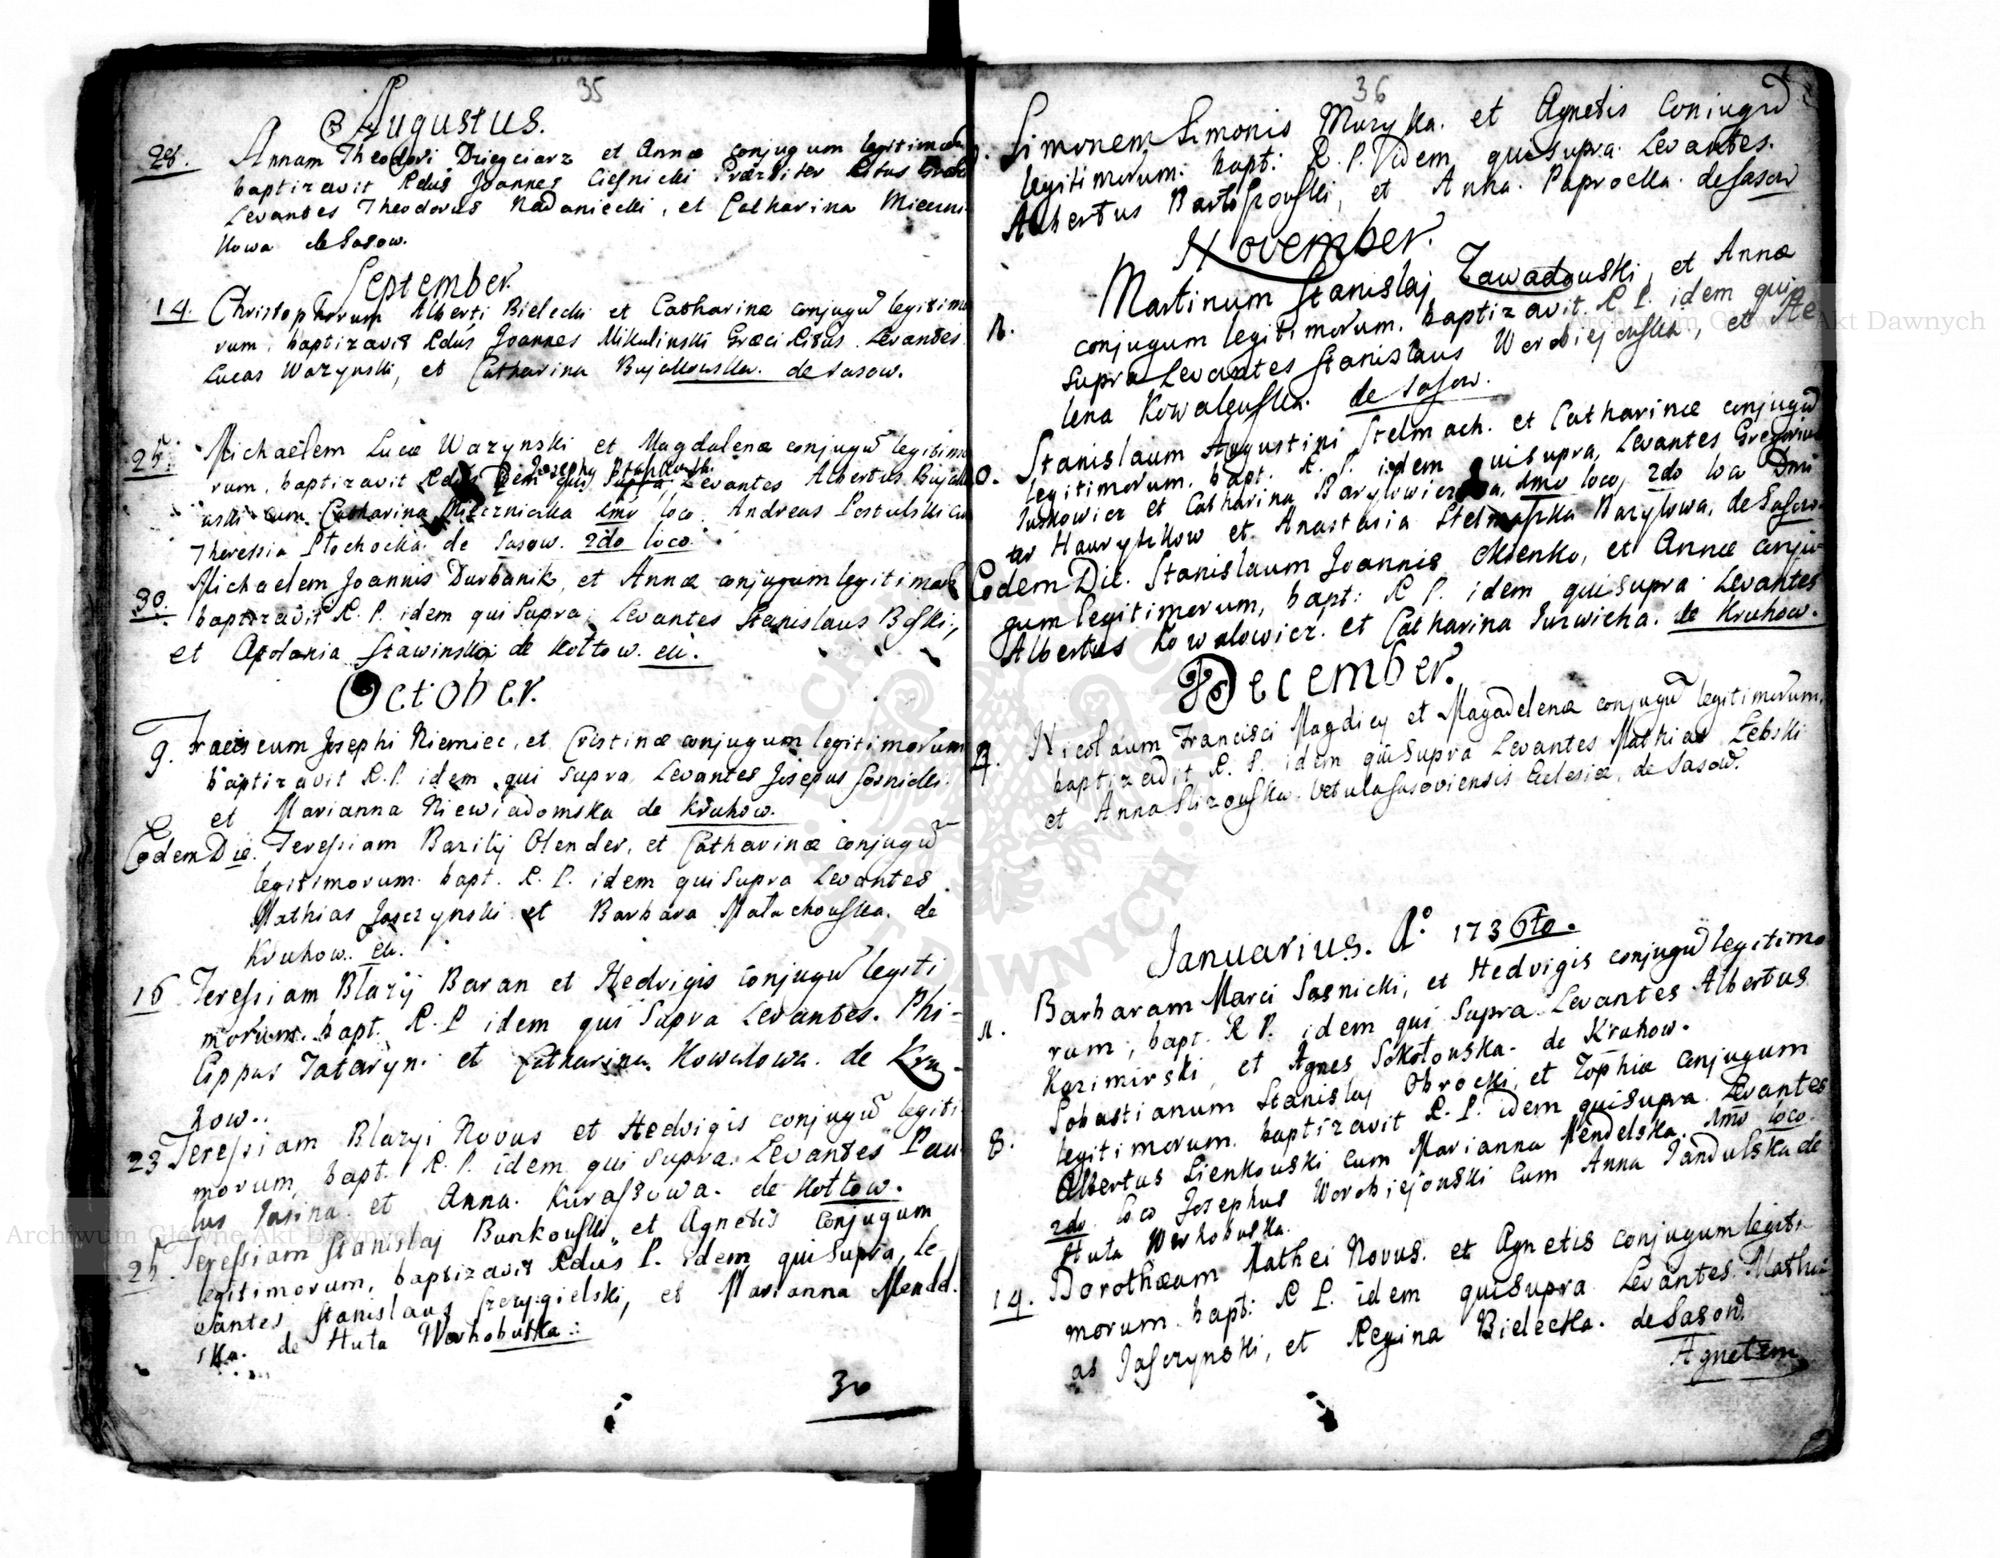 35
Augustus.
28. Annam Theodori Dziegciarz et Annæ conjugum legitimorum
baptizavit Rdus Joannes Cieśnicki Præzbiter Ritus Græci
Levantes Theodorus Nadaniecki, et Catharina Mieczni
kowa de Sasow.
September.
14. Christophorum Alberti Bielecki et Catharinæ conjugū legitimo
rum, baptizavit Rdus Joannes Mikulinski Græci Ritus. Levantes
Lucas Wazynski, et Catharina Bujakouska. de Sasow.
25. Michaelem Lucæ Wazynski et Magdalenæ conjugū legitimo
rum, baptizavit Rdus idem qui Supra, Levantes Albertus
uski cum Catharina Miecznicka 1mo loco. Andreas Postulski cum
Theressia Płochocka de Sasow. 2do loco.
30. Michaelem Joannis Durbanik, et Annæ conjugum legitimorū
baptizavit R. P. idem qui Supra, Levantes Stanislaus Beski,
et Apolonia Stawinska de Kottow.
October.
9. Franciscum Josephi Niemiec, et Cristinæ conjugum legitimorum
baptizavit R. P. idem qui Supra, Levantes Josepus Sosnicki
et Marianna Niewiadomska de Kruhow.
Eodem Die. Teressiam Bazilij Olender, et Catharinæ conjugū
legitimorum bapt. R. P. idem qui Supra Levantes
Mathias Jasczynski et Barbara Małachouska. de
Kruhow.
16 Teressiam Blazij Baran et Hedvigis conjugū legiti
morum. bapt. R. P idem qui Supra Levantes. Phi-
lippus Tataryn et Catharina Kowalowa. de Kru-
how..
23 Teressiam Blazyi Novus et Hedvigis conjugū legiti
morum, bapt. R. P. idem qui Supra. Levantes Pau
lus Jasina et Anna. Kurassowa. de Kottow.
25. Teressiam Stanislaj Bunkouski, et Agnetis Conjugum
legitimorum, baptizavit Rdus P. idem qui Supra, le
vantes Stanislaus Szczygielski, et Marianna Mendel
ska. de Huta Werhobuska:
30
36
Simonem Simonis Muzyka. et Agnetis Conjugū
legitimorum. bapt: R. P. idem qui supra Levantes.
Albertus Bartoszouski, et Anna. Paprocka. de Sasow
November.
11. Martinum Stanislaj Zawadouski, et Annæ
conjugum legitimorum. baptizavit R P. idem qui
Supra Levantes Stanislaus Worobiejouski, et He
lena Kowaleuska. de Sasow.
Stanislaum Augustini Stelmach. et Catharinæ conjugū
legitimorum. bapt. R. P. idem qui supra, Levantes Gregorius
Juskowicz et Catharina Barylowiczowa, 1mo loco, 2do loco
Hawrylikow et Anastasia Stelmaszka Bazylowa, de Sasow.
Eodem Die. Stanislaum Joannis Oksenko, et Annæ conju
gum legitimorum, bapt: R P. idem qui supra Levantes
Albertus Kowalowicz. et Catharina Surwicha. de Kruhow.
December.
Nicolaum Francisci Magdicy et Magadelenæ conjugū legitimorum,
baptizavit R. P. idem qui Supra Levantes Mathias Zebski
et Anna Slizouska. Vetulasasoviensis Eclesiæ, de Sasow.
Januarius. Ao. 1736to.
11. Barbaram Marci Sasnicki, et Hedvigis conjugū legitimo
rum, bapt. R P. idem qui Supra Levantes Albertus
Kazimirski, et Agnes Sokołouska. de Kruhow.
8. Sobastianum Stanislaj Obrocki, et Zophiæ Conjugum
legitimorum. baptizavit R. P. idem qui supra Levantes
Albertus Sienkouski cum Marianna Mendelska. 1mo loco.
2do. loco Josephus Worobiejouski cum Anna Jandulska de
Huta Werhobuska.
14. Dorothæum Mathei Novus. et Agnetis conjugum legiti
morum bapt: R P. idem qui supra Levantes. Mathi
as Jasczynski, et Regina Bielecka. de Sasow.
Agnetem
Archiwum Główne Akt Dawnych
Archiwum Główne Akt Dawnych